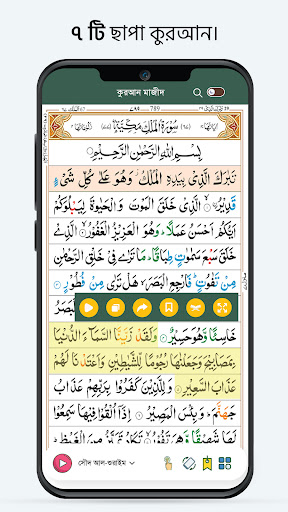 ৭ টি ছাপা কুরআন।
কুরআন মাজীদ
789
سُوْرَةُ الْمُلْكِ مَكِّيَّةٌ
بِسْمِ اللّٰهِ الرَّحْمٰنِ الرَّحِيْمِ
تَبٰرَكَ الَّذِيْ بِيَدِهِ الْمُلْكُ وَهُوَ عَلٰى كُلِّ شَيْءٍ
قَدِيْرُ الَّذِيْ خَلَقَ الْمَوْتَ وَالْحَيٰوةَ لِيَبْلُوَكُمْ
اَيُّكُمْ اَحْسَنُ عَمَلًا وَهُوَ الْعَزِيْزُ الْغَفُوْرُ الَّذِيْ
خَلَقَ سَبْعَ سَمٰوٰتٍ طِبَاقًا مَا تَرٰى فِيْ خَلْقِ الرَّحْمٰنِ
مِنْ تَفٰوُتٍ فَارْجِعِ الْبَصَرَ هَلْ تَرٰى مِنْ فُطُوْرٍ
خَاسِئًا وَّهُوَ حَسِيْرٌ وَلَقَدْ زَيَّنَّا السَّمَآءَ الدُّنْيَا
بِمَصَابِيْحَ وَجَعَلْنٰهَا رُجُوْمًا لِّلشَّيٰطِيْنِ وَاَعْتَدْنَا لَهُمْ
عَذَابَ السَّعِيْرِ وَلِلَّذِيْنَ كَفَرُوْا بِرَبِّهِمْ عَذَابُ
جَهَنَّمَ وَبِئْسَ الْمَصِيْرُ اِذَآ اُلْقُوْا فِيْهَا سَمِعُوْا
لَهَا شَهِيْقًا وَّهِيَ تَفُوْرُ تَكَادُ تَمَيَّزُ مِنَ الْغَيْظِ
সৌদ আল-শুরাইম